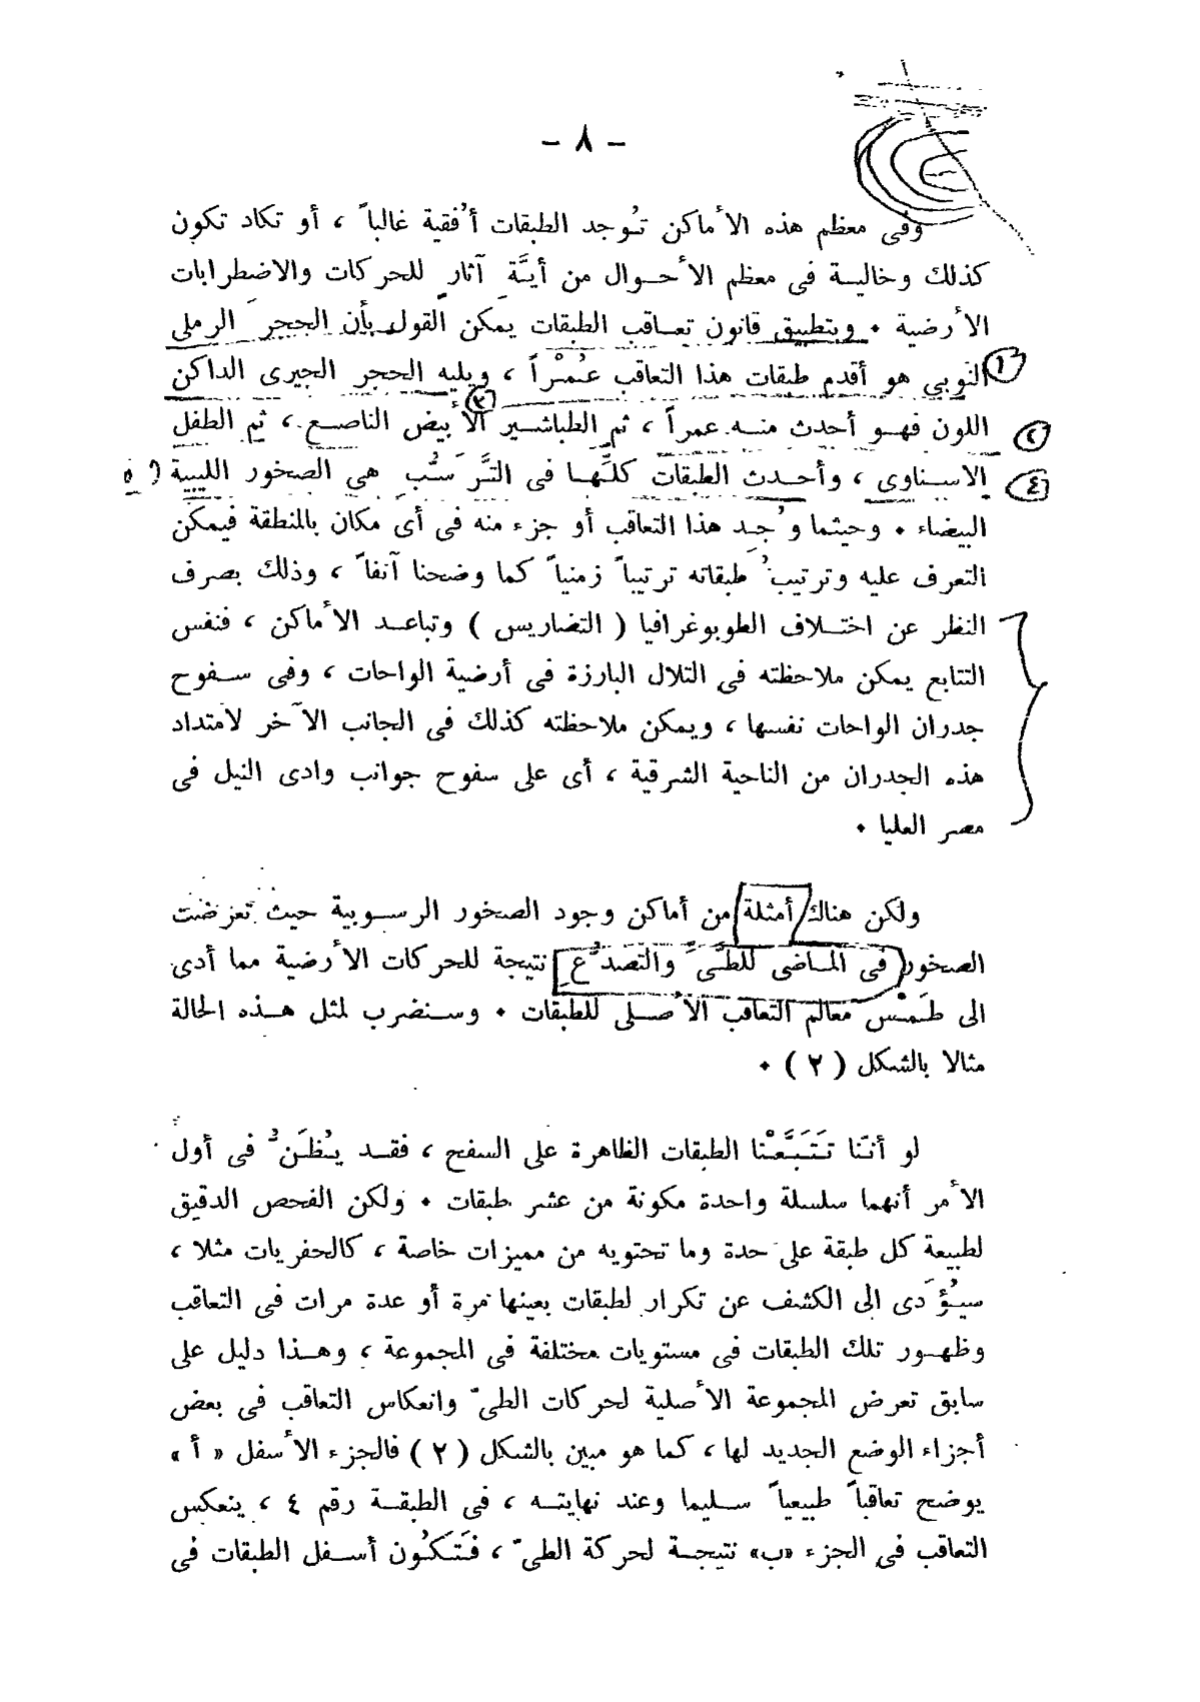 – ٨ –
وفى معظم هذه الأماكن تُوجد الطبقات أُفقية غالباً ، أو تكاد تكون
كذلك وخاليـة فى معظم الأحـوال من أيَّة آثار للحركات والاضطرابات
الأرضية ٠ وبتطبيق قانون تعـاقب الطبقات يمكن القول بأن الحجر الرملى
النوبى هو أقدم طبقات هذا التعاقب عُمْراً ، ويليه الحجر الجيرى الداكن ①
اللون فهـو أحدث منـه عمراً ، ثم الطباشـير ③ الأبيض الناصـع ، ثم الطفل ②
الاسـناوى ، وأحـدث الطبقات كلِّهـا فى التَّرَسُّب هى الصخور الليبية ④ ٥
البيضاء ٠ وحيثما وُجِد هذا التعاقب أو جزء منه فى أى مكان بالمنطقة فيمكن
التعرف عليه وترتيبُ طبقاته ترتيباً زمنياً كما وضحنا آنفاً ، وذلك بصرف
النظر عن اختـلاف الطوبوغرافيا ( التضاريس ) وتباعـد الأماكن ، فنفس
التتابع يمكن ملاحظته فى التلال البارزة فى أرضية الواحات ، وفى سـفوح
جدران الواحات نفسها ، ويمكن ملاحظته كذلك فى الجانب الآخر لامتداد
هذه الجدران من الناحية الشرقية ، أى على سفوح جوانب وادى النيل فى
مصر العليا ٠
ولكن هناك أمثلة من أماكن وجود الصخور الرسـوبية حيث تعرضت
الصخور فى المـاضى للطَّىِّ والتصدُّعِ نتيجة للحركات الأرضية مما أدى
الى طَمْس معالم التعاقب الأصـلى للطبقات ٠ وسـنضرب لمثل هـذه الحالة
مثالا بالشكل ( ٢ ) ٠
لو أنّنا تَتَبَّعْنا الطبقات الظاهرة على السفح ، فقـد يُظَنُّ فى أول
الأمر أنهما سلسلة واحدة مكونة من عشر طبقات ٠ ولكن الفحص الدقيق
لطبيعة كل طبقة على حدة وما تحتويه من مميزات خاصة ، كالحفريات مثلا ،
سيُؤَدى الى الكشف عن تكرار لطبقات بعينها مرة أو عدة مرات فى التعاقب
وظهـور تلك الطبقات فى مستويات مختلفة فى المجموعة ، وهـذا دليل على
سابق تعرض المجموعة الأصلية لحركات الطىّ وانعكاس التعاقب فى بعض
أجزاء الوضع الجديد لها ، كما هو مبين بالشكل ( ٢ ) فالجزء الأسفل « أ »
يوضح تعاقباً طبيعياً سـليما وعند نهايتـه ، فى الطبقـة رقم ٤ ، ينعكس
التعاقب فى الجزء «ب» نتيجـة لحركة الطىّ ، فَتَكُون أسـفل الطبقات فى